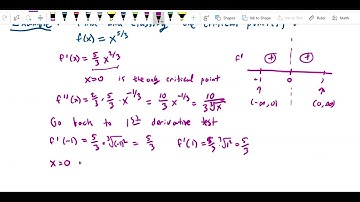 Example: Find and classify the critical point(s)
f(x) = x^5/3
f'(x) = 5/3 x^2/3
x=0 is the only critical point
f''(x) = 2/3 · 5/3 · x^-1/3 = 10/3 x^-1/3 = 10/3∛x
Go back to 1st derivative test
f'(-1) = 5/3 · ∛(-1)² = 5/3 f'(1) = 5/3 · ∛1² = 5/3
x=0
f' + +
-1 0 1
(-∞,0) (0,∞)